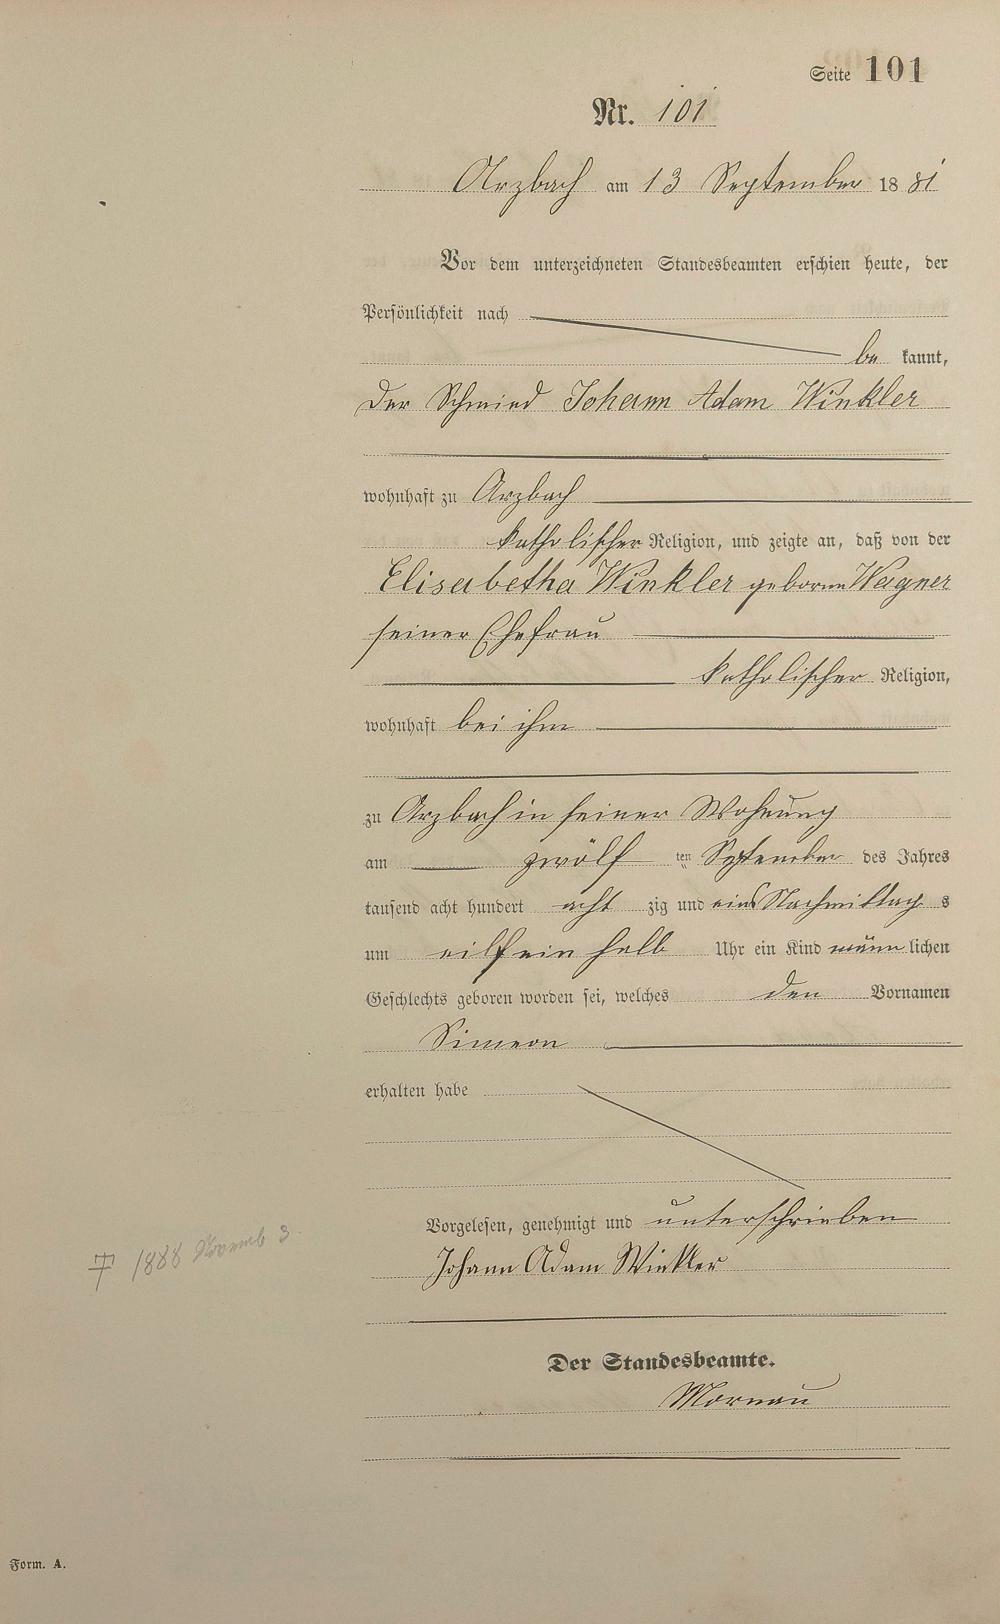 Seite 101
Nr. 101
Arzbach am 13 September 1881
Vor dem unterzeichneten Standesbeamten erschien heute, der
Persönlichkeit nach
be kannt,
der Schmied Johann Adam Winkler
wohnhaft zu Arzbach
katholischer Religion, und zeigte an, daß von der
Elisabetha Winkler geborne Wagner
seiner Ehefrau
katholischer Religion,
wohnhaft bei ihm
zu Arzbach in seiner Wohnung
am zwölf ten September des Jahres
tausend acht hundert acht zig und eins Nachmittag s
um eilf ein halb Uhr ein Kind männ lichen
Geschlechts geboren worden sei, welches den Vornamen
Simeon
erhalten habe
Vorgelesen, genehmigt und unterschrieben
† 1888 Novemb 3.
Johann Adam Winkler
Der Standesbeamte.
Mornau
Form. A.